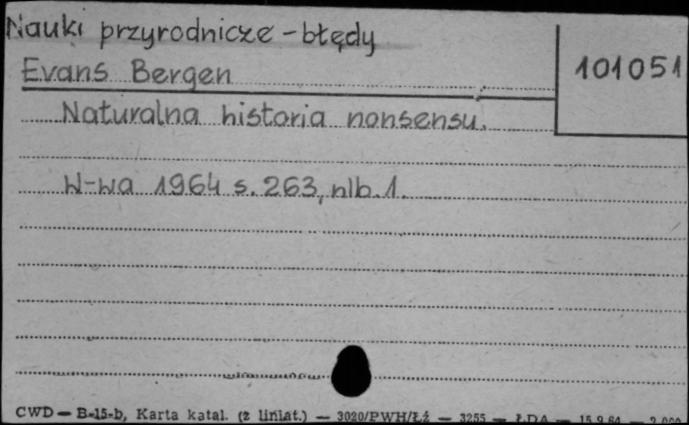 Nauki przyrodnicze - błędy
Evans Bergen
101051
Naturalna historia nonsensu.
W-wa 1964 s. 263, nlb. 1.
CWD — B-15-b, Karta katal. (z liniat.) — 3020/PWH/Łź — 3255 — ŁDA — 15.9.64 — 2.000